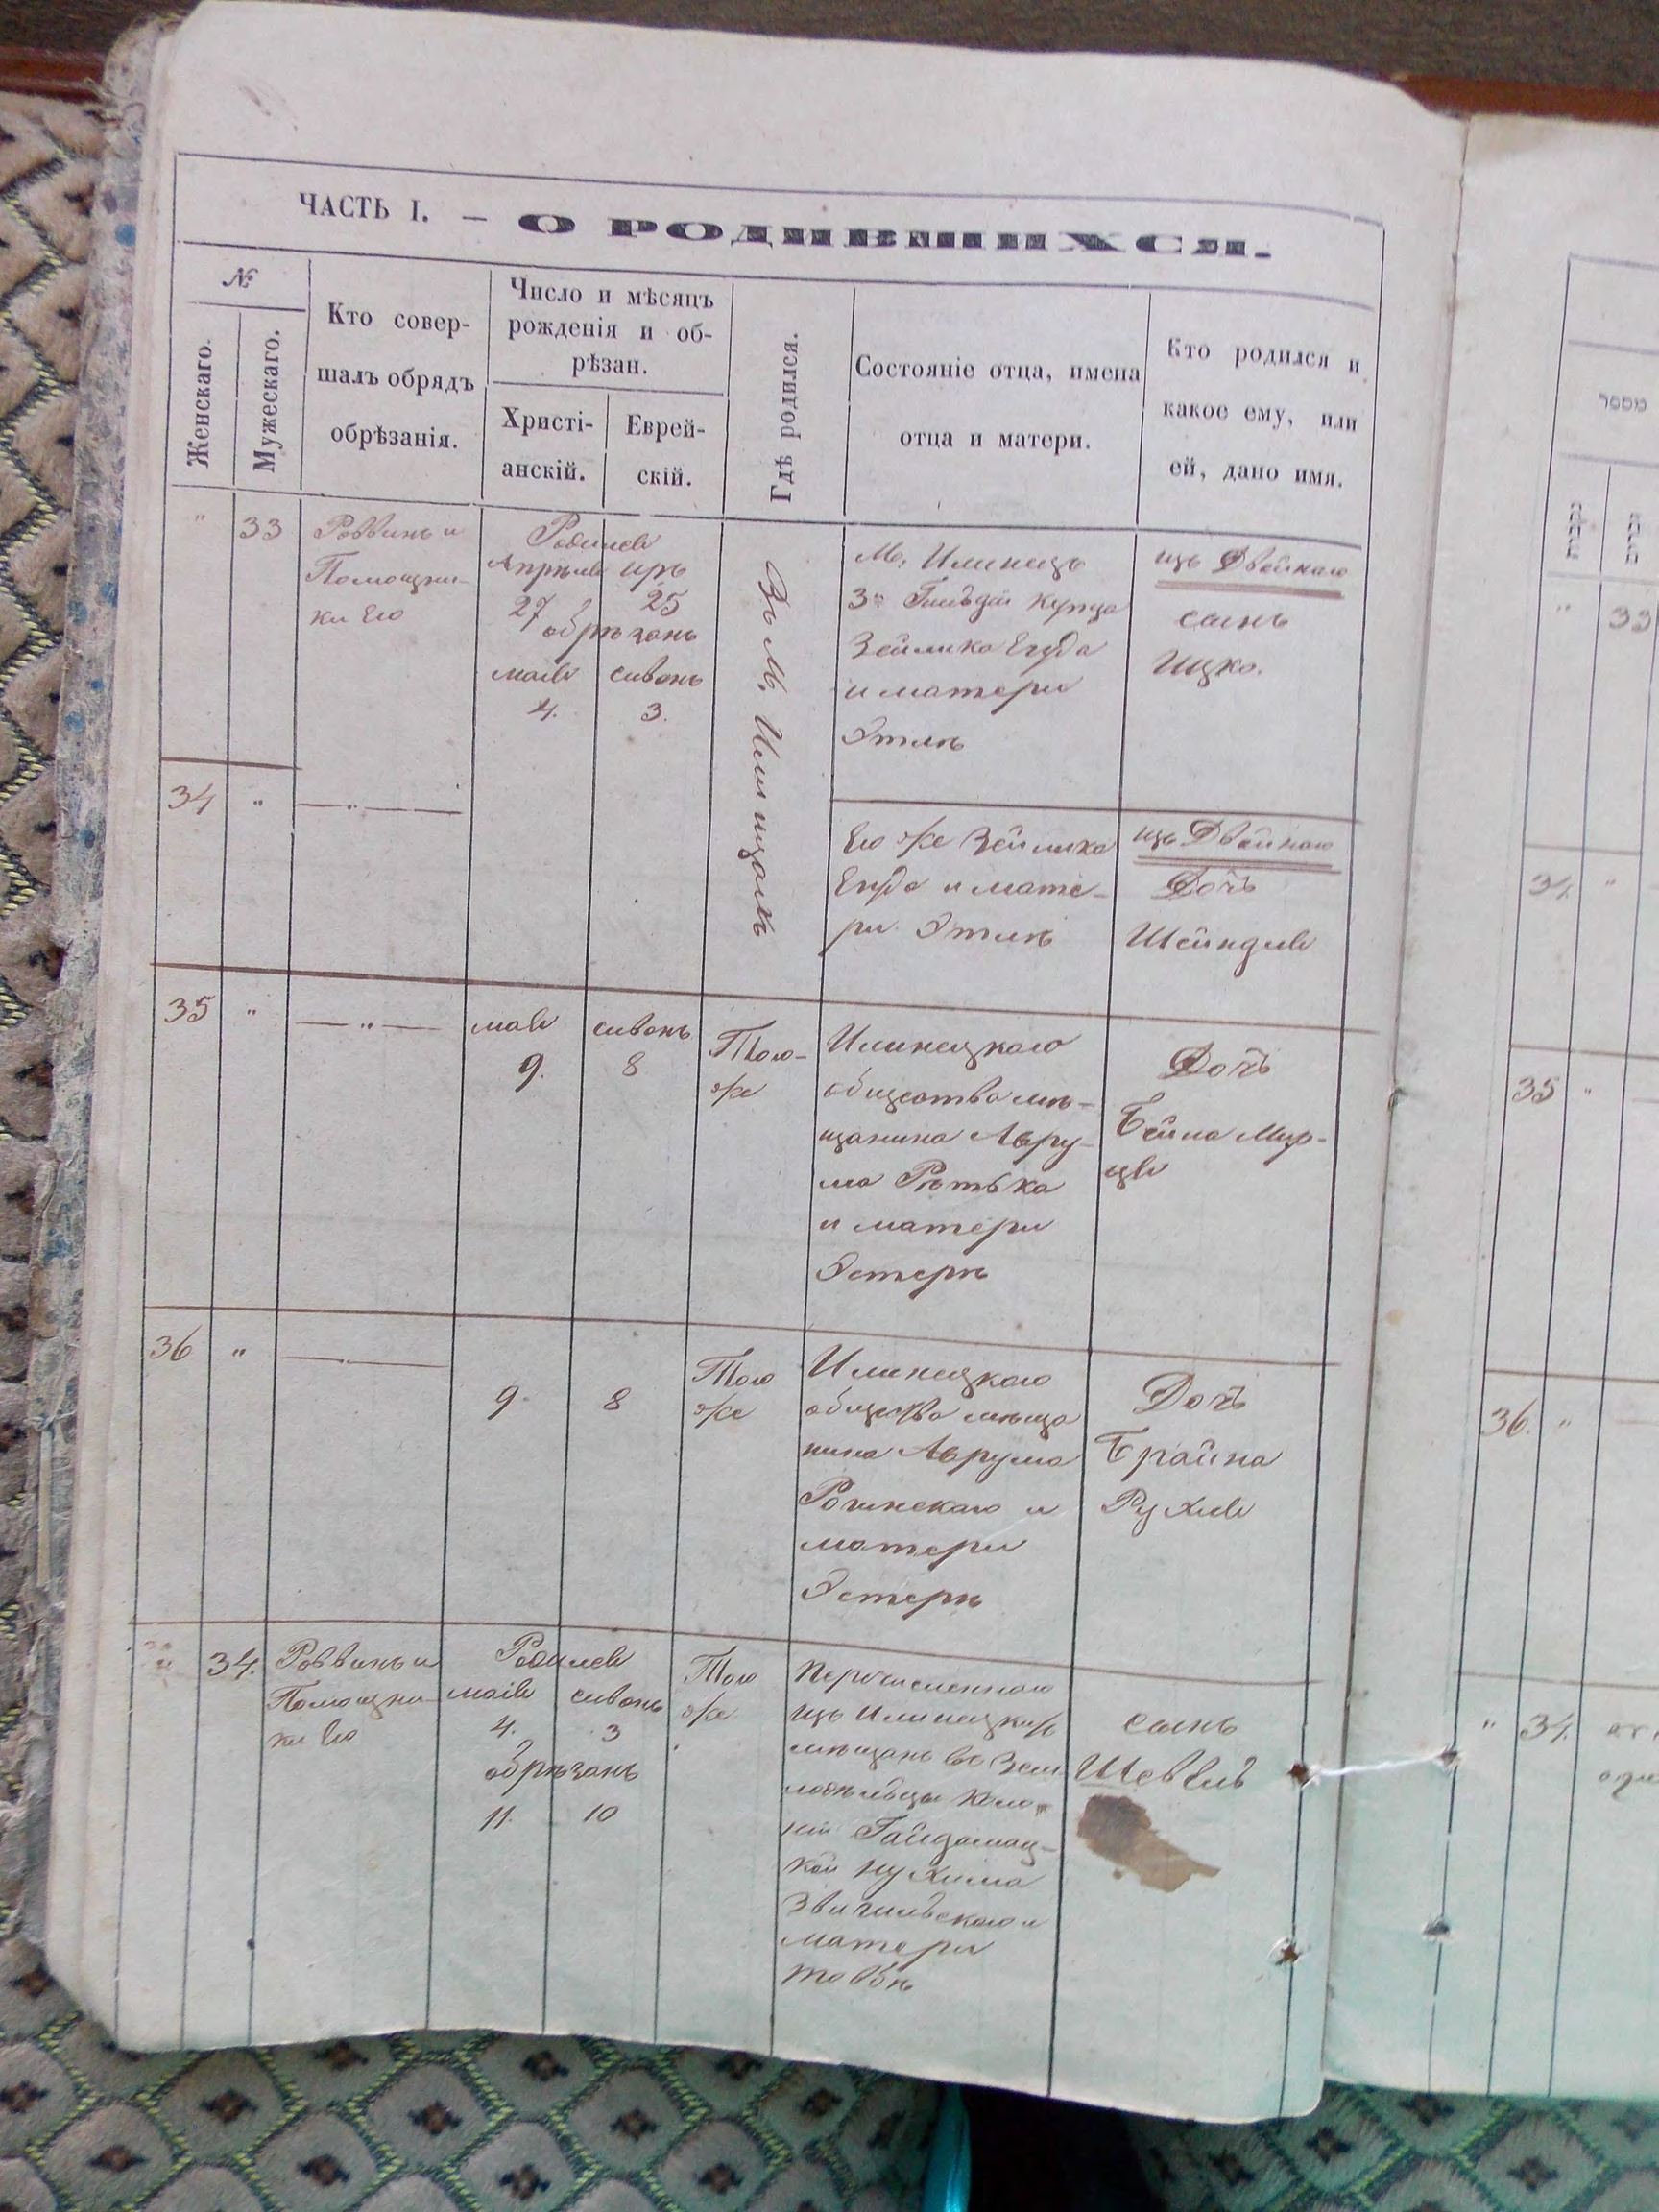 ЧАСТЬ I. — О РОДИВШИХСЯ.
№
Женскаго.
Мужескаго.
Кто совер-
шалъ обрядъ
обрѣзанія.
Число и мѣсяцъ
рожденія и об-
рѣзан.
Христі-
анскій.
Еврей-
скій.
Гдѣ родился.
Состояніе отца, имена
отца и матери.
Кто родился и
какое ему, или
ей, дано имя.
" 33
Раввинъ и
Помощни-
ки Его
Родился
Апрѣля иръ
27 25
обрѣзанъ
маія сивонъ
4. 3.
Въ М. Илинцахъ
М. Илинецъ
3й Гильдіи Купца
Зейлика
и матери
Этли
изъ Двойнаю
сынъ
Ицко.
34 " — " —
Его же Зейлика
и мате-
ри Этли
изъ Двойнаю
Дочь
Шейндля
35 " — " —
маія сивонъ
9. 8
Того-
же
Илинецкаго
общества мѣ-
щанина Авру-
ма
и матери
Эстеръ
Дочь
Бейла Мир-
ця
36 " —
9. 8
Того
же
Илинецкаго
общества мѣща
нина Аврума
и
матери
Эстеръ
Дочь
Брайна
Рухля
34.
Раввинъ и
Помощни-
ки Его
Родился
маія сивонъ
4. 3
обрѣзанъ
11. 10
Того
же
Перечисленнаго
изъ Илинецкихъ
мѣщанъ въ Зем
ледѣльцы Коло-
ніи Гайдамац-
кой Нухима
и
матери
сынъ
33
מספר
" 33
34. "
35 "
36. "
" 34.